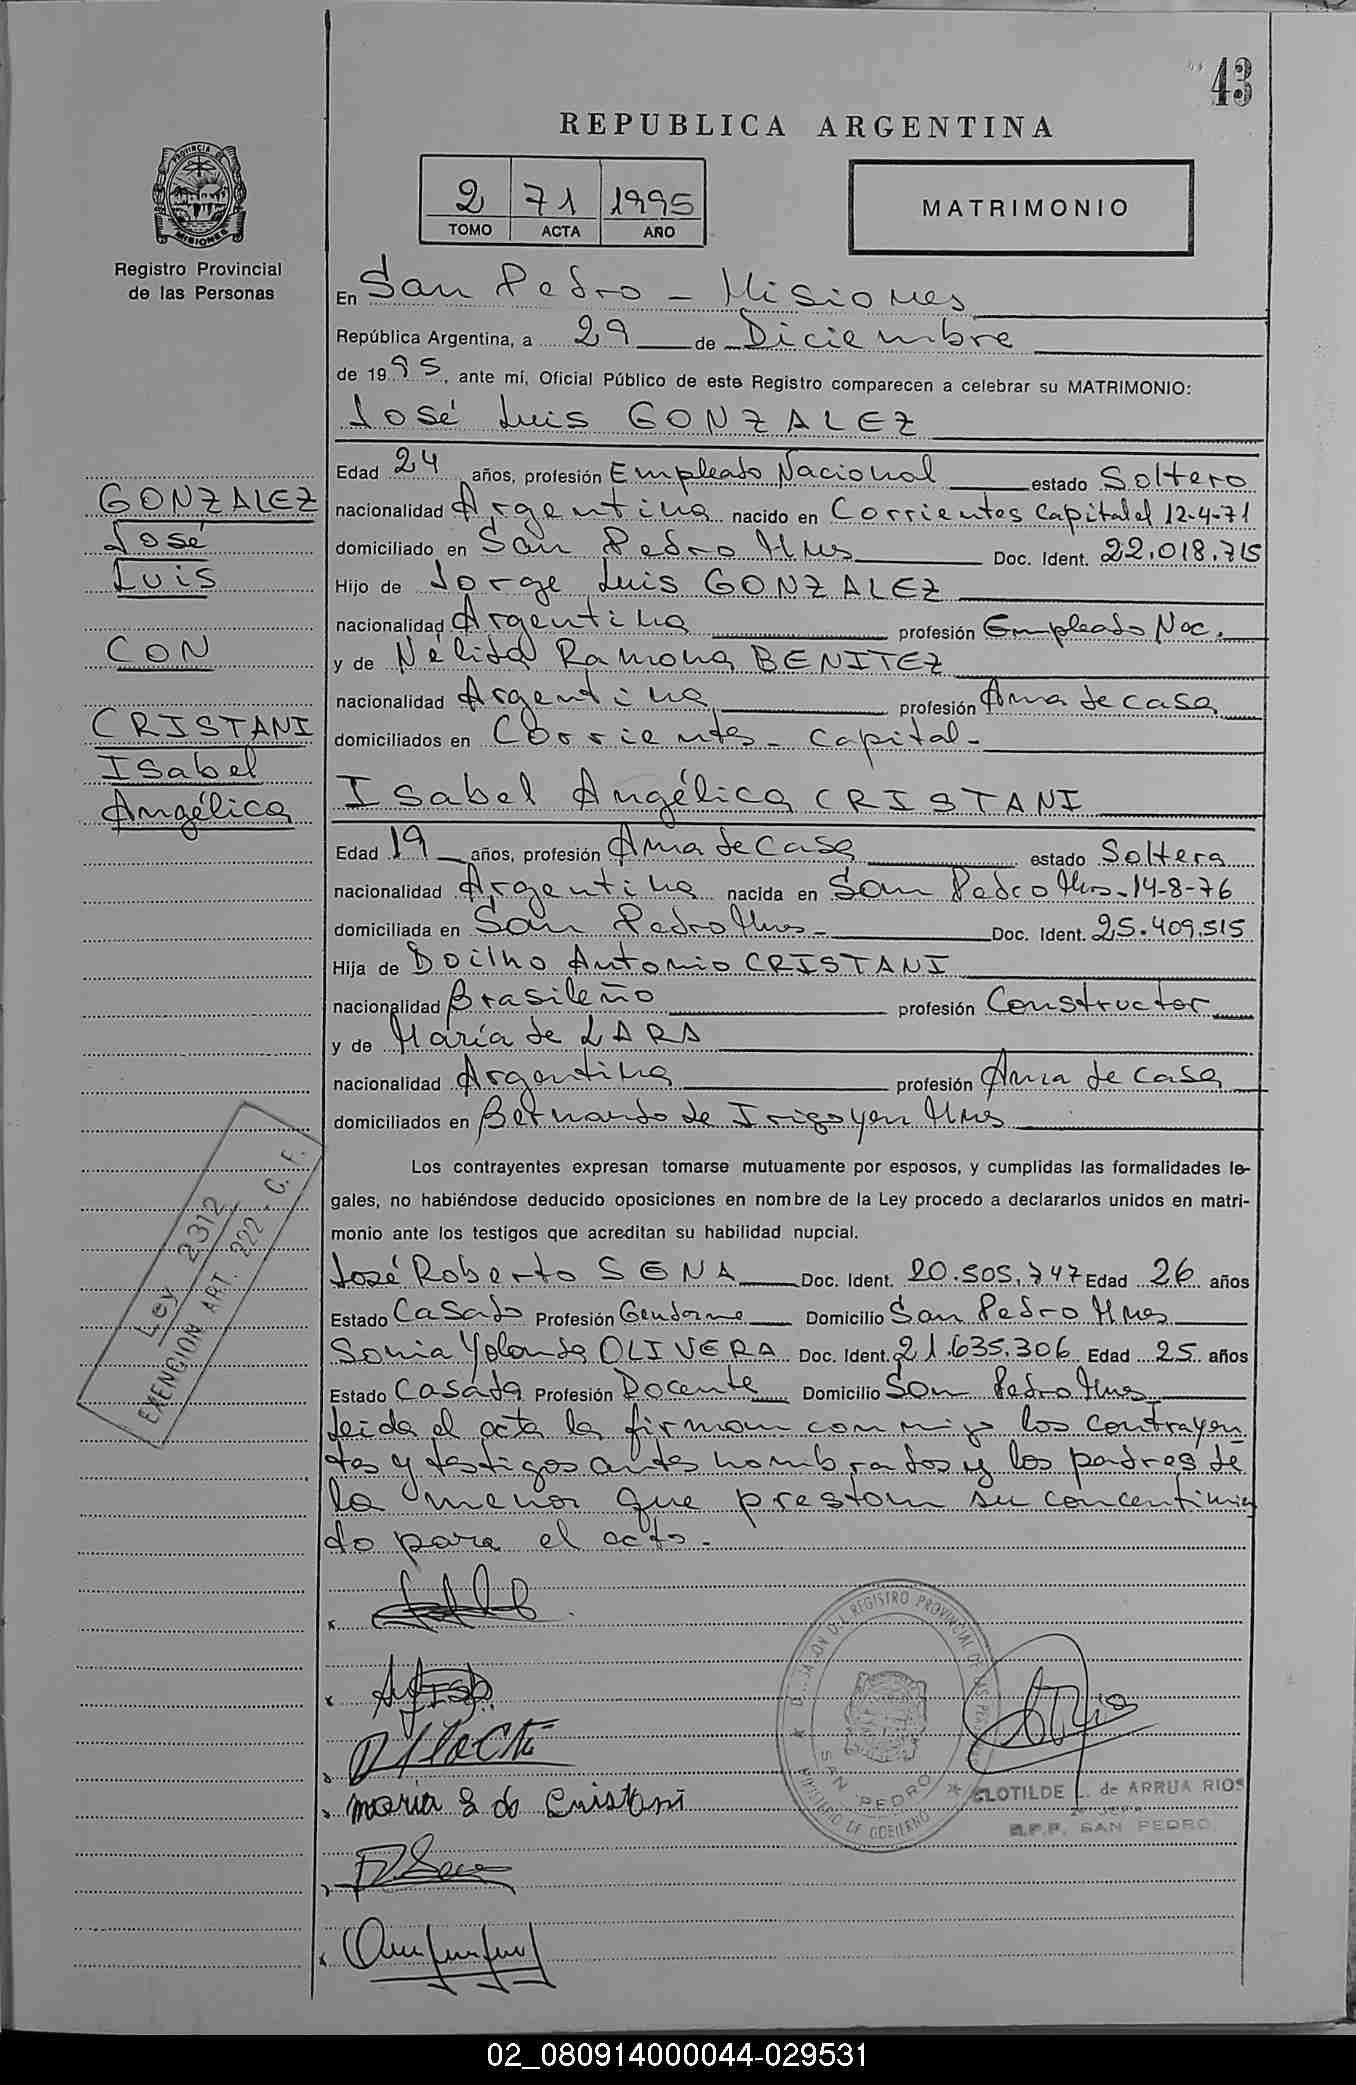 43
REPUBLICA ARGENTINA
PROVINCIA DE
MISIONES
Registro Provincial
de las Personas
2 71 1995
TOMO ACTA AÑO
MATRIMONIO
En San Pedro - Misiones
República Argentina, a 29 de Diciembre
de 1995, ante mí, Oficial Público de este Registro comparecen a celebrar su MATRIMONIO:
José Luis GONZALEZ
Edad 24 años, profesión Empleado Nacional estado Soltero
nacionalidad Argentina nacido en Corrientes Capital el 12-4-71
domiciliado en San Pedro Mnes Doc. Ident. 22.018.715
Hijo de Jorge Luis GONZALEZ
nacionalidad Argentina profesión Empleado Nac.
y de Nélida Ramona BENITEZ
nacionalidad Argentina profesión Ama de casa
domiciliados en Corrientes - Capital -
Isabel Angélica CRISTANI
Edad 19 años, profesión Ama de Casa estado Soltera
nacionalidad Argentina nacida en San Pedro Mns - 14-8-76
domiciliada en San Pedro Mnes - Doc. Ident. 25.409.515
Hija de Doilho Antonio CRISTANI
nacionalidad Brasileño profesión Constructor
y de María de LARA
nacionalidad Argentina profesión Ama de Casa
domiciliados en Bernardo de Irigoyen Mnes
GONZALEZ
José
Luis
CON
CRISTANI
Isabel
Angélica
Los contrayentes expresan tomarse mutuamente por esposos, y cumplidas las formalidades le-
gales, no habiéndose deducido oposiciones en nombre de la Ley procedo a declararlos unidos en matri-
monio ante los testigos que acreditan su habilidad nupcial.
José Roberto SENA Doc. Ident. 20.505.747 Edad 26 años
Estado Casado Profesión Gendarme Domicilio San Pedro Mnes
Sonia Yolanda OLIVERA Doc. Ident. 21.635.306 Edad 25 años
Estado Casada Profesión Docente Domicilio San Pedro Mnes
Leida el acta la firman conmigo los contrayen
tes y testigos antes nombrados y los padres de
la menor que prestan su concentimien
to para el acto.
Ley 2312
EXENCION ART. 222 - C. F.
maria L de Cristani
DEL REGISTRO PROVINCIAL DE LAS PERSONAS
SAN PEDRO
MINISTERIO DE GOBIERNO
CLOTILDE L. de ARRUA RIOS
R.P.P. SAN PEDRO
02_080914000044-029531